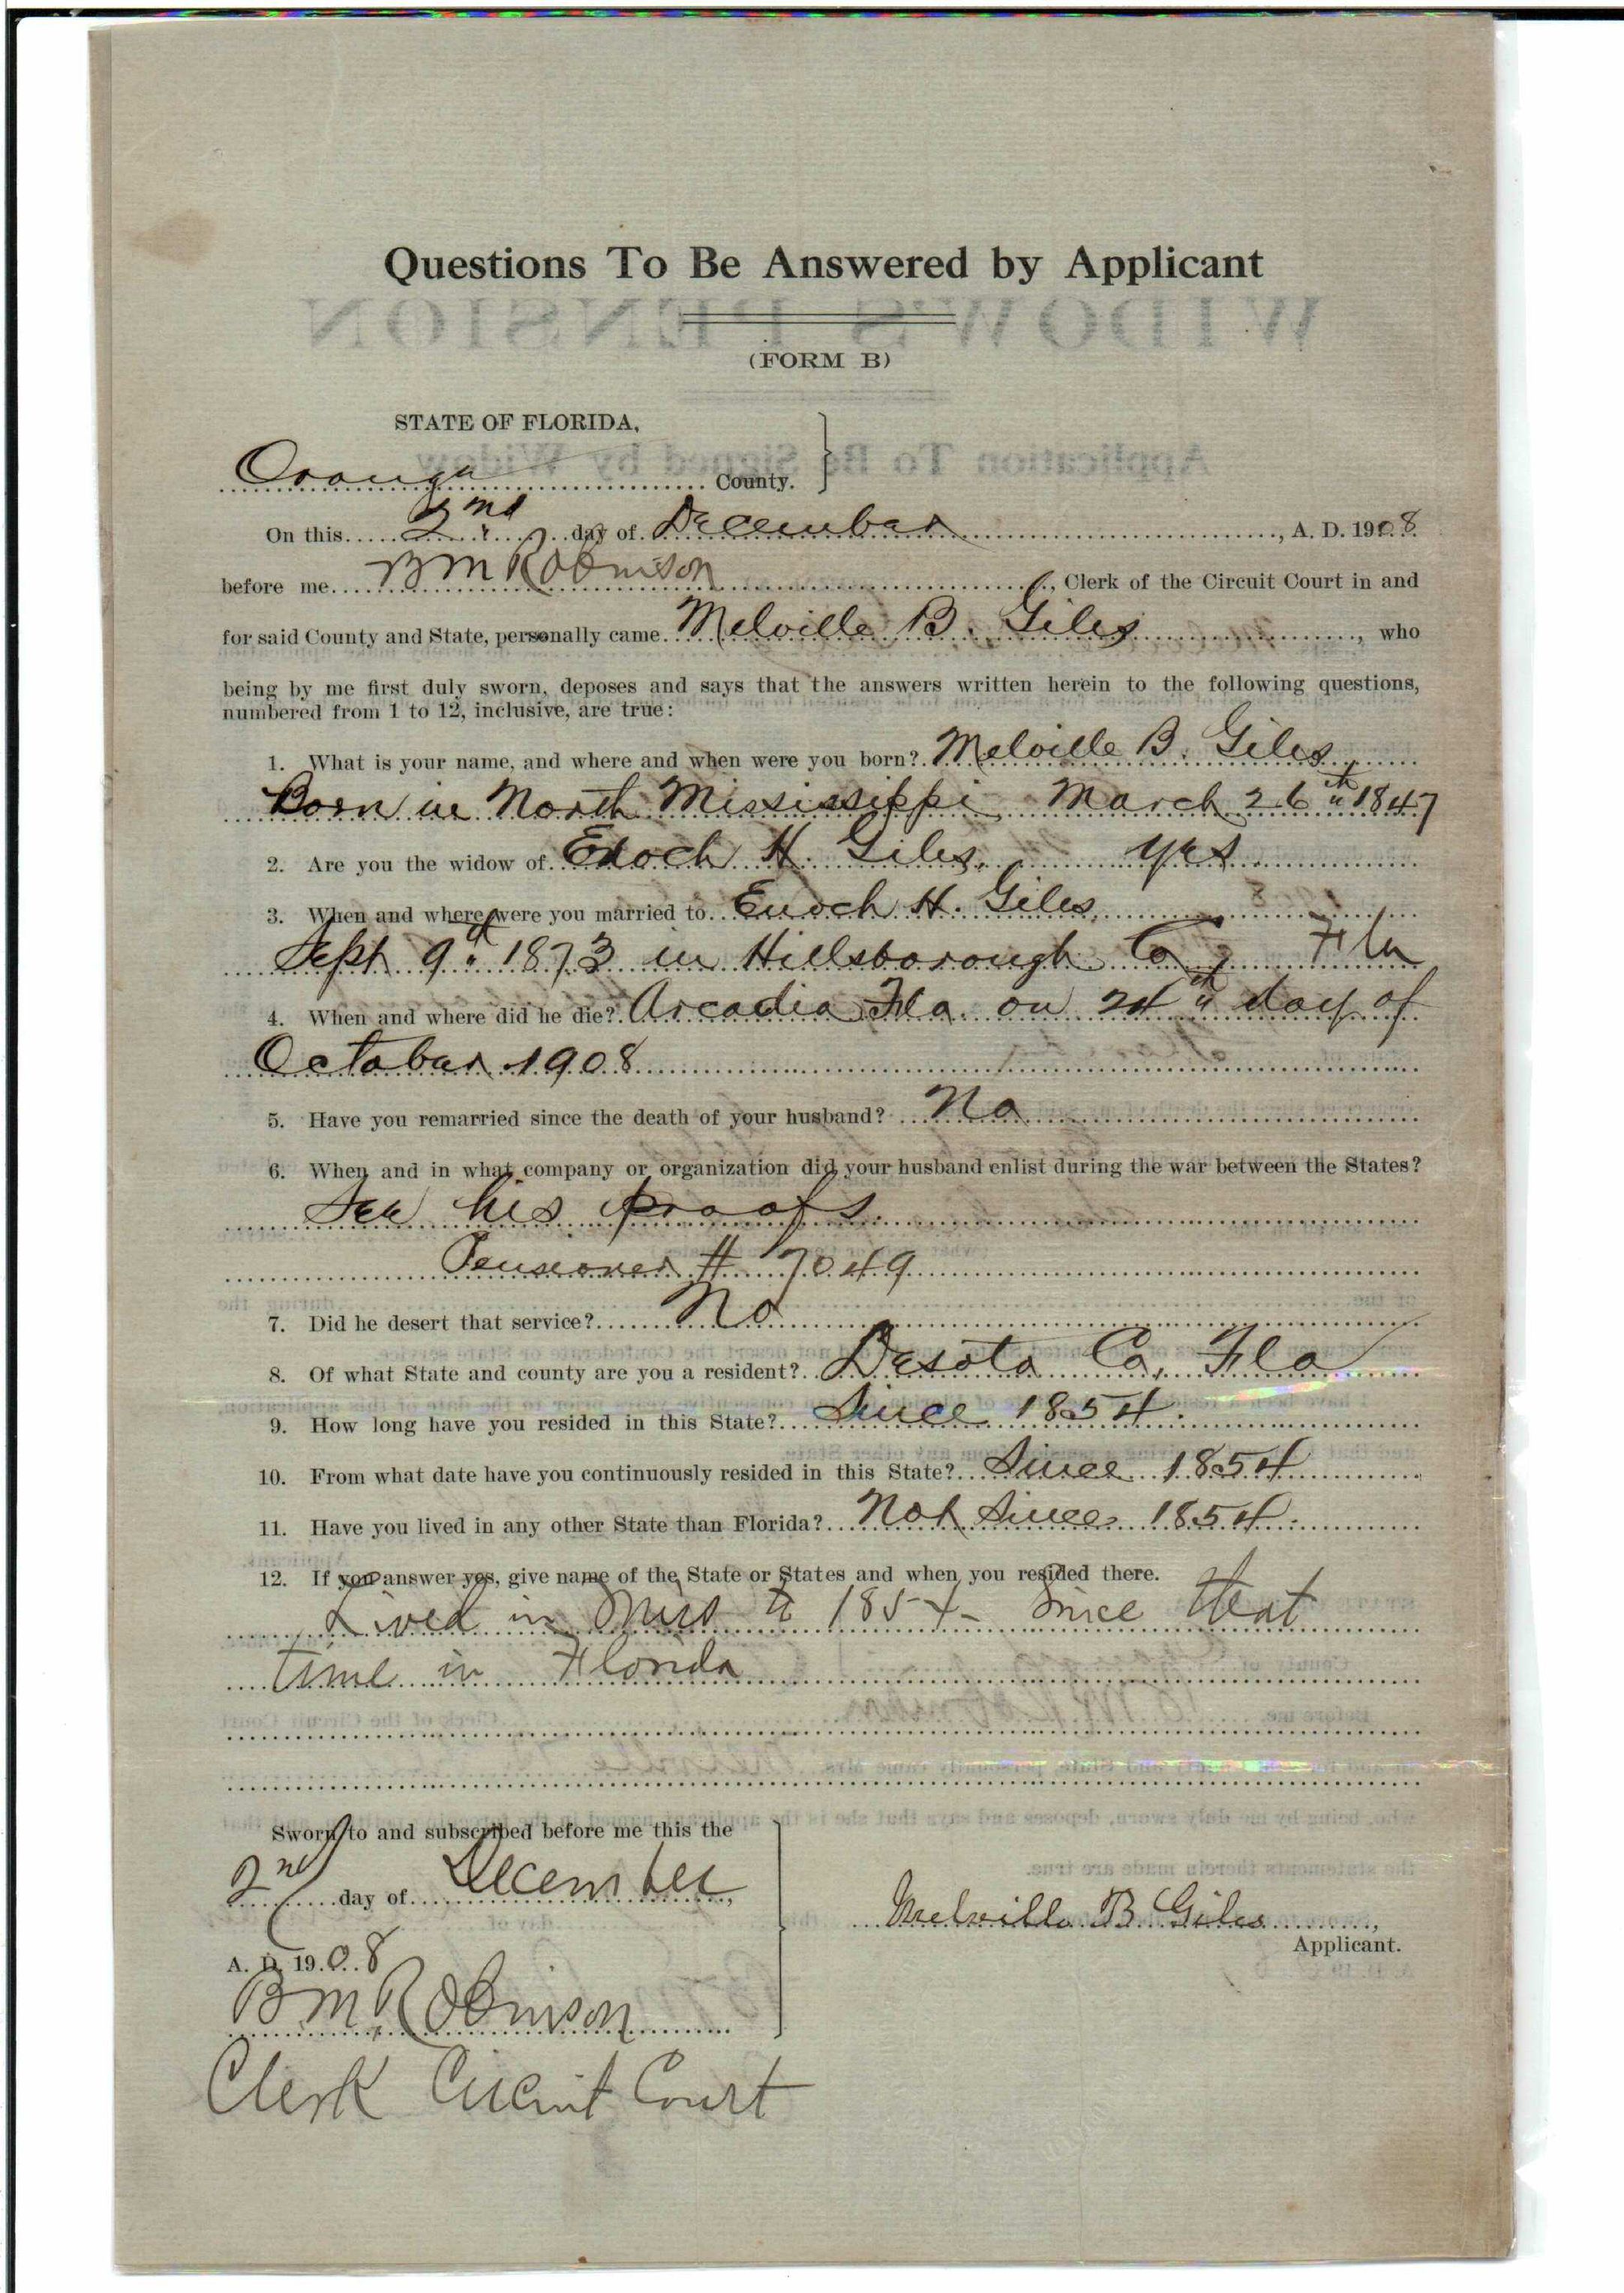 Questions To Be Answered by Applicant
WIDOW'S PENSION
(FORM B)
STATE OF FLORIDA,
Application To Be Signed by Widow
Orange County.
On this 2nd day of December, A. D. 1908
before me B M Robinson, Clerk of the Circuit Court in and
for said County and State, personally came Melville B. Giles, who
being by me first duly sworn, deposes and says that the answers written herein to the following questions,
numbered from 1 to 12, inclusive, are true:
1. What is your name, and where and when were you born? Melville B. Giles,
Born in North Mississippi March 26th 1847
2. Are you the widow of Enoch H. Giles. yes.
3. When and where were you married to Enoch H. Giles,
Sept 9th 1873 in Hillsborough Co, Fla
4. When and where did he die? Arcadia Fla. on 24th day of
October 1908
5. Have you remarried since the death of your husband? No
6. When and in what company or organization did your husband enlist during the war between the States?
See his proofs.
Pensioner # 7049
7. Did he desert that service? No
8. Of what State and county are you a resident? Desoto Co, Fla
9. How long have you resided in this State? Since 1854.
10. From what date have you continuously resided in this State? Since 1854
11. Have you lived in any other State than Florida? Not Since 1854.
12. If you answer yes, give name of the State or States and when you resided there.
Lived in Miss to 1854- Since that
time in Florida
Sworn to and subscribed before me this the
2nd day of December,
Melville B Giles,
Applicant.
A. D. 1908
B M Robinson
Clerk Circuit Court